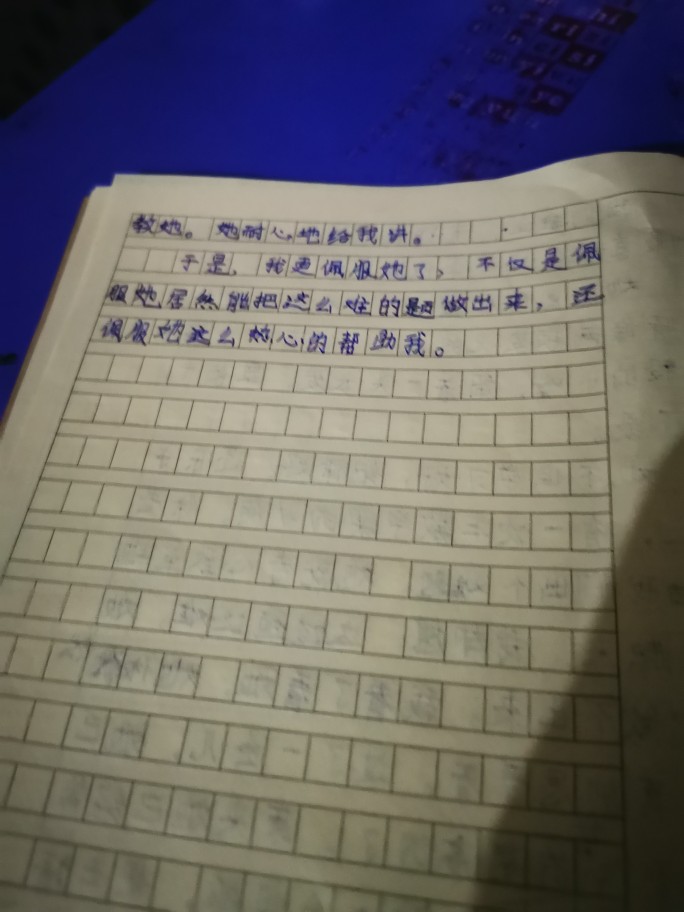 教她。她耐心地给我讲。
于是，我更佩服她了，不仅是佩
服她居然能把这么难的题做出来，还
佩服她这么热心的帮助我。